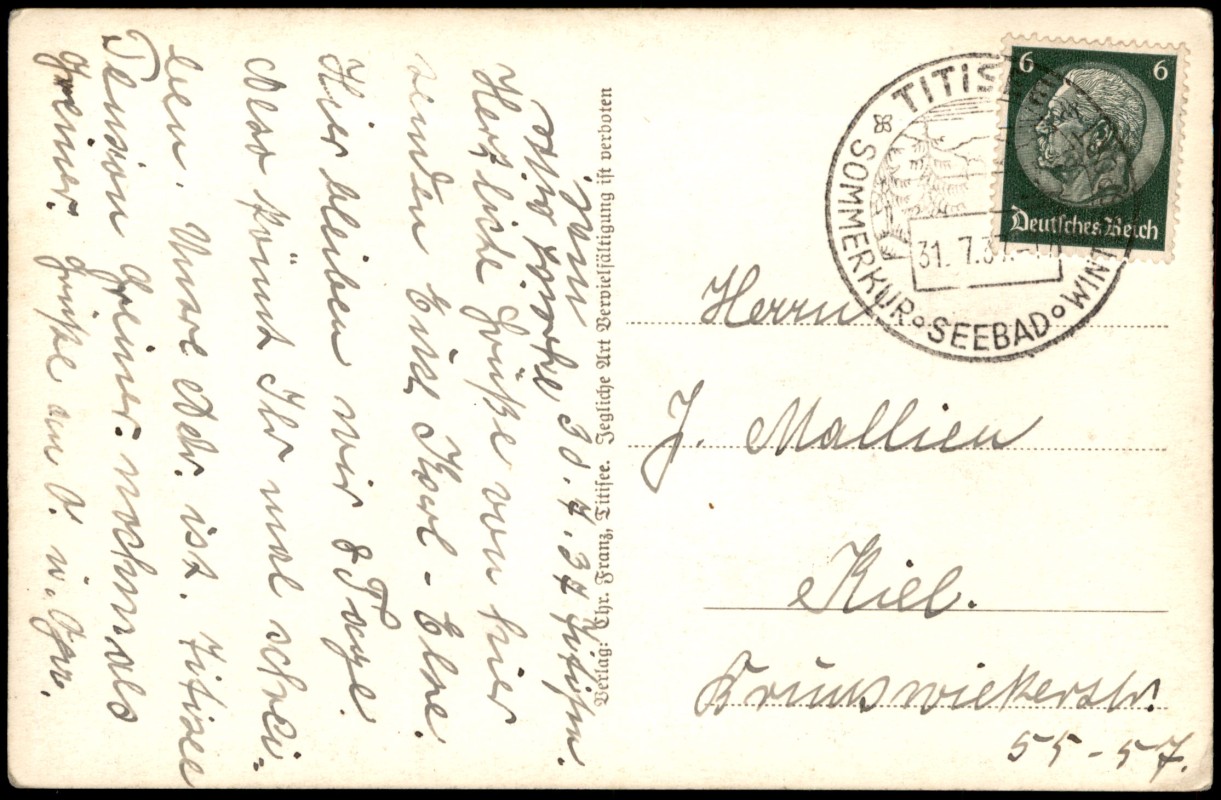 den 30.7.37 Titisee.
Herzliche Grüße von hier
senden Euch Karl - Else.
Hier bleiben wir 8 Tage.
Da könnt Ihr mal schrei-
ben. Unsre Adr. ist. Titisee
Pension Greiner. nochmals
Grüße an O. u.
Verlag: Chr. Franz, Titisee. Jegliche Art Vervielfältigung ist verboten
TITISEE
SOMMERKUR SEEBAD WINT
31. 7.37.
6 6
Deutsches Reich
Herrn
J. Mallien
Kiel.
Brunswiekerstr.
55-57.